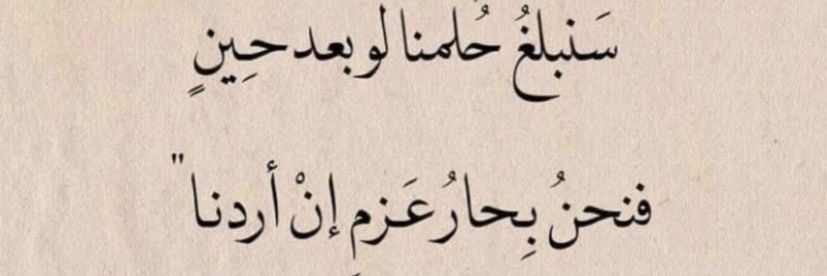 سَنبلغُ حُلمنا لو بعد حِينٍ
فنحنُ بِحارُ عَزمٍ إنْ أردنا"